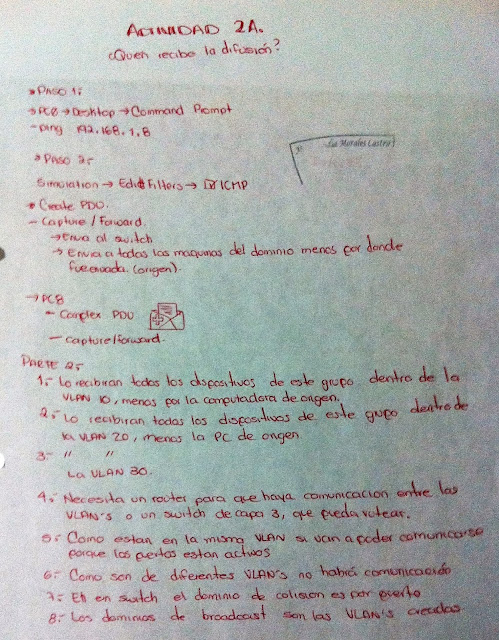 ACTIVIDAD 2A.
¿Quien recibe la difusión?
* PASO 1:
→ PC0 → Desktop → Command Prompt
- ping 192.168.1.8
Morales Castro
* PASO 2:-
Simulation → Edit Filters → ☑ ICMP
* Create PDU.
- Capture / Forward.
→ Envia al switch
→ Envia a todas las maquinas del dominio menos por donde
fue enviada. (origen).
→ PC8
- Complex PDU
- Capture/forward.
PARTE 2:-
1.- Lo recibiran todos los dispositivos de este grupo dentro de la
VLAN 10, menos por la computadora de origen.
2.- Lo recibiran todos los dispositivos de este grupo dentro de
la VLAN 20, menos la PC de origen
3.- " "
La VLAN 30.
4.- Necesita un router para que haya comunicacion entre las
VLAN's o un switch de capa 3, que pueda rutear.
5.- Como estan en la misma VLAN si van a poder comunicarse
porque los puertos estan activos
6.- Como son de diferentes VLAN's no habrá comunicación
7.- En switch el dominio de colision es por puerto
8.- Los dominios de broadcast son las VLAN's creadas.